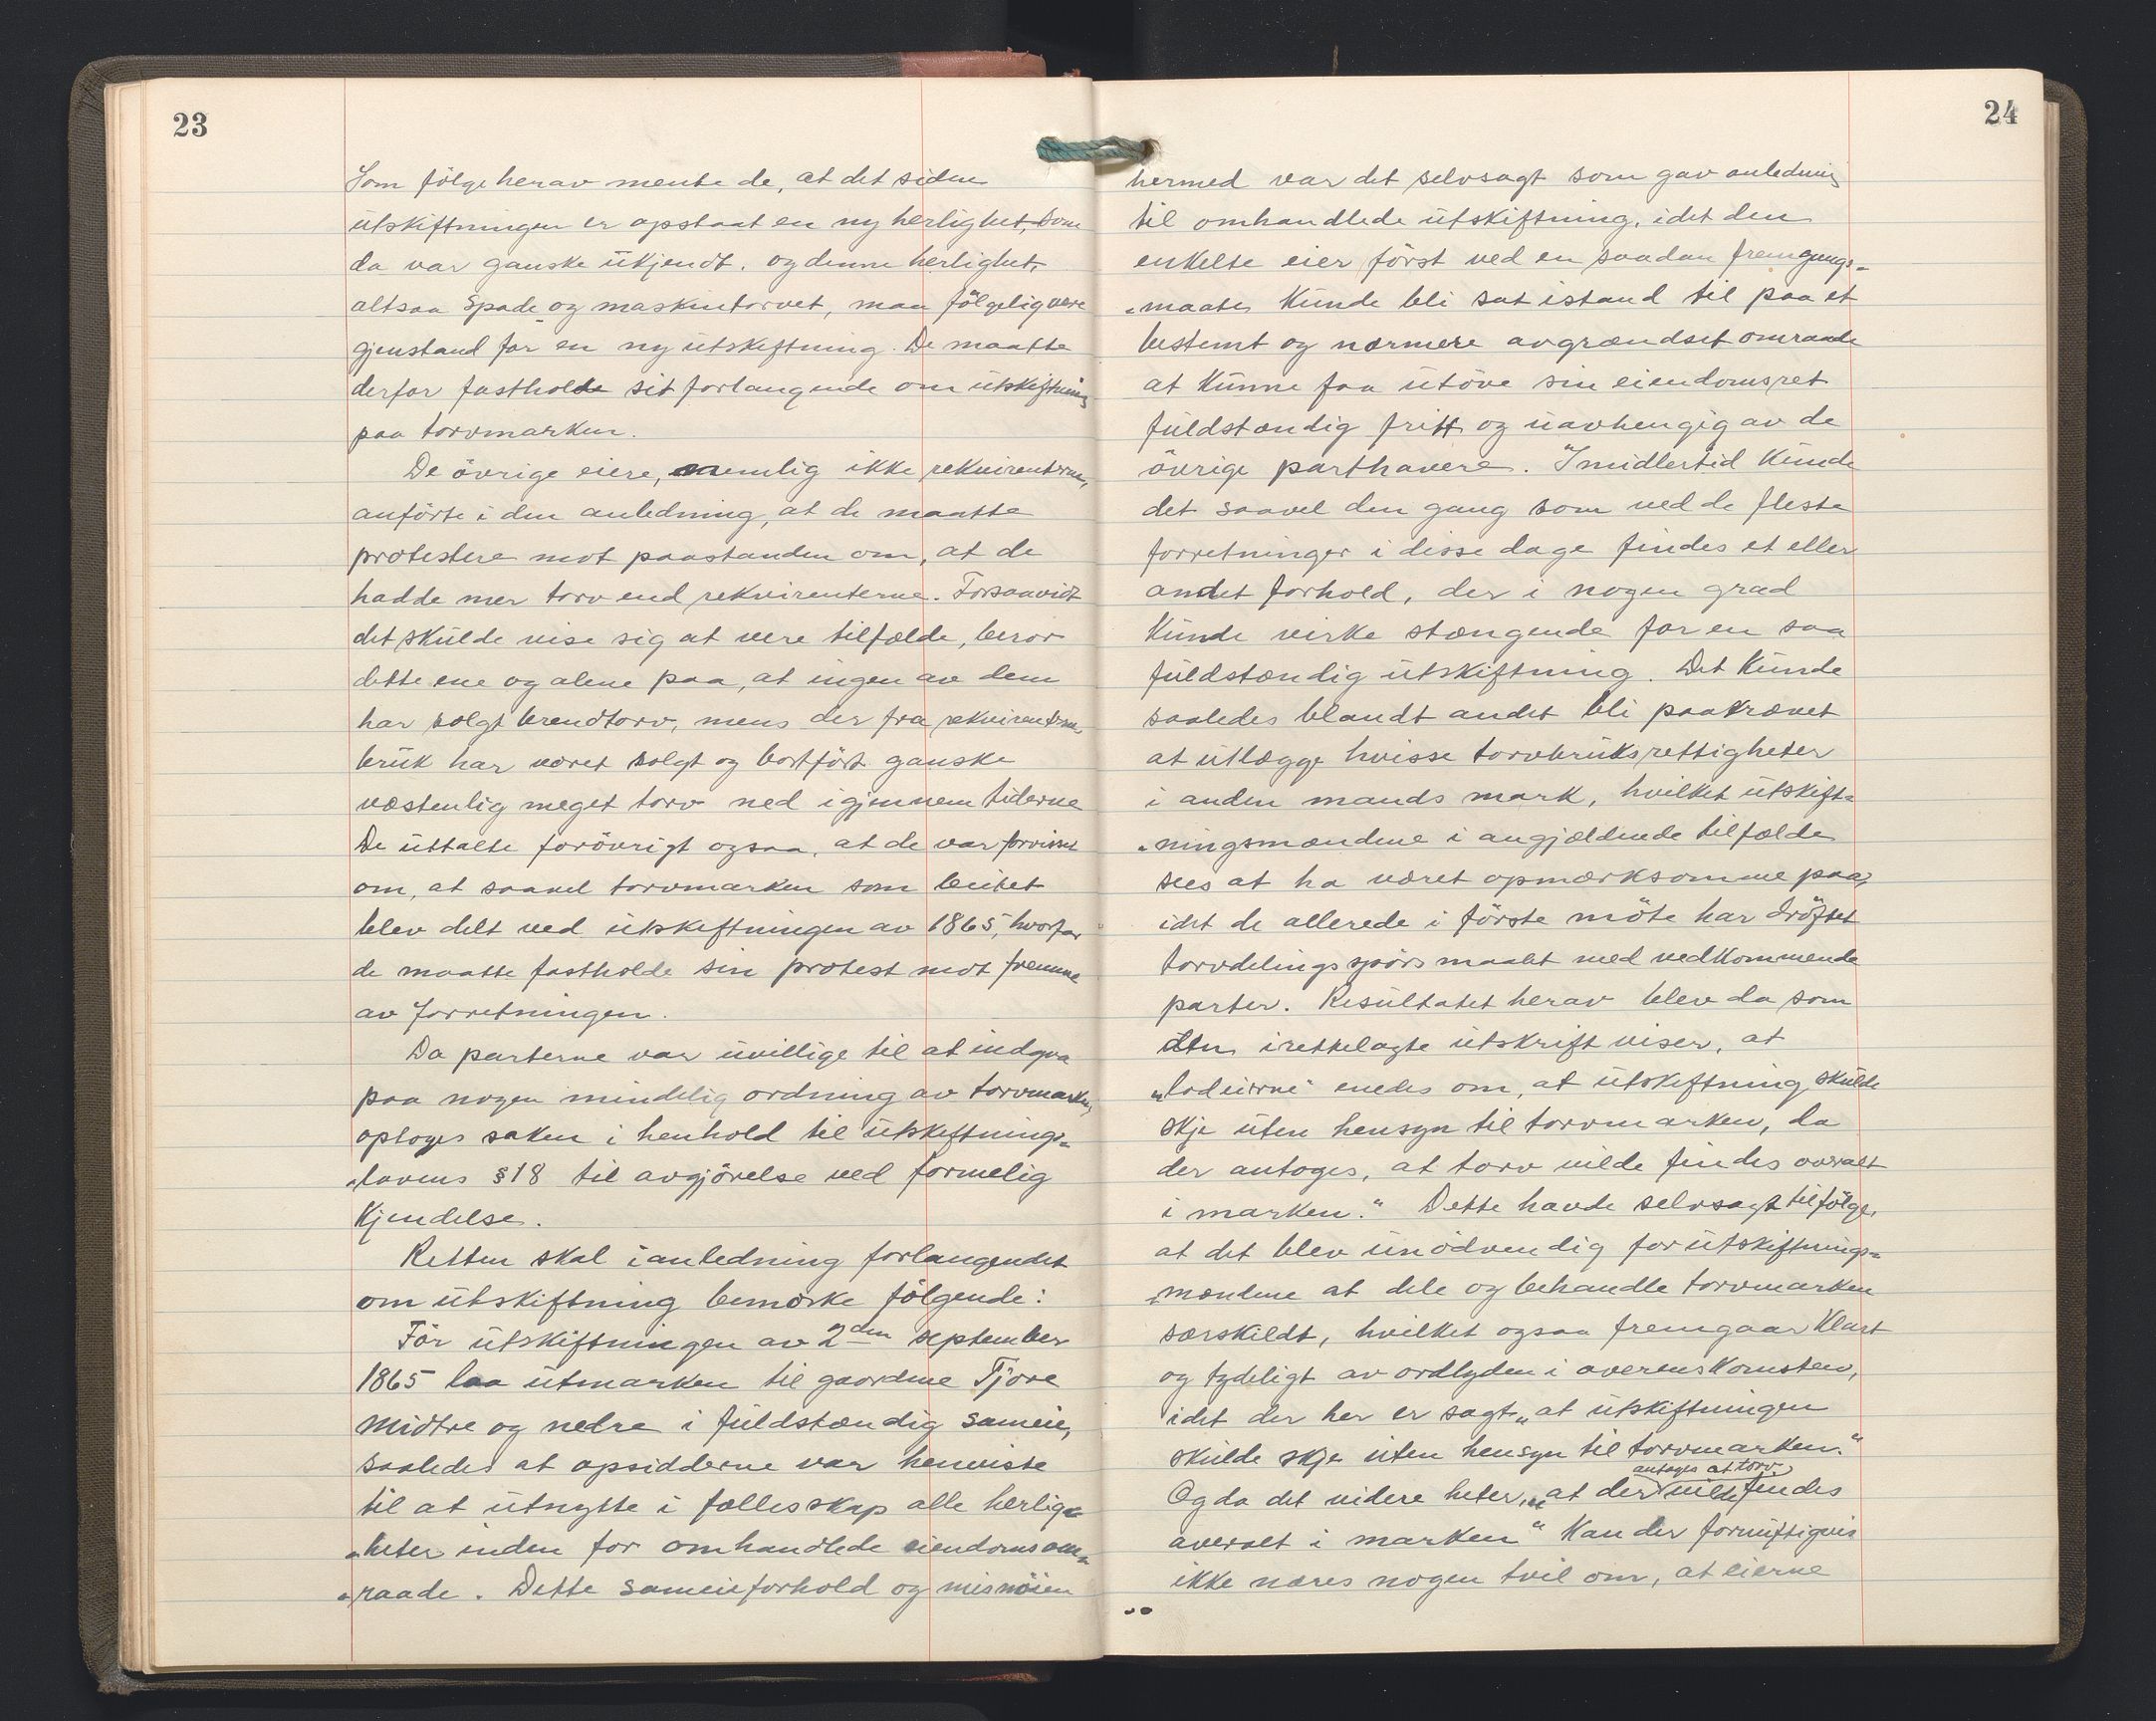 23
Som følge herav mente de, at det siden
utskiftningen er opstaat en ny herlighet, som
da var ganske ukjendt. og denne herlighet,
altsaa spade og maskintorvet, maa følgelig være
gjenstand for en ny utskiftning. De maatte
derfor fastholde sit forlangende om utskiftning
paa torvmarken.
De øvrige eiere, nemlig ikke rekvirenterne,
anførte i den anledning, at de maatte
protestere mot paastanden om, at de
hadde mer torv end rekvirenterne. Forsaavidt
det skulde vise sig at være tilfælde, beror
dette ene og alene paa, at ingen av dem
har solgt brendtorv, mens der fra rekvirenternes
bruk har været solgt og bortført ganske
væsentlig meget torv ned igjennem tiderne
De uttalte forøvrigt ogsaa, at de var forvisset
om, at saavel torvmarken som beitet
blev delt ved utskiftningen av 1865, hvorfor
de maatte fastholde sin protest mot fremme
av forretningen.
Da parterne var uvillige til at indgaa
paa nogen mindelig ordning av torvmarken,
optoges saken i henhold til utskiftnings=
„lovens §18 til avgjørelse ved formelig
Kjendelse.
Retten skal i anledning forlangendet
om utskiftning bemærke følgende:
Før utskiftningen av 2den september
1865 laa utmarken til gaardene Tjøre
Midtre og nedre i fuldstændig sameie,
saaledes at opsidderne var henviste
til at utnytte i fællesskap alle herlig=
„heter inden for omhandlede eiendomsom=
„raade. Dette sameieforhold og misnøien
24
hermed var det selvsagt som gav anledning
til omhandlede utskiftning, idet den
enkelte eier først ved en saadan fremgangs=
„maate Kunde bli sat istand til paa et
bestemt og nærmere avgrændset omraade
at Kunne faa utøve sin eiendomsret
fuldstændig fritt og uavhengig av de
øvrige parthavere. Imidlertid Kunde
det saavel den gang som ved de fleste
forretninger i disse dage findes et eller
andet forhold, der i nogen grad
Kunde virke stængende for en saa
fuldstændig utskiftning. Det Kunde
saaledes blandt andet bli paakrævet
at utlægge hvisse torvbruksrettigheter
i anden mands mark, hvilket utskift=
„ningsmændene i angjældende tilfælde
sees at ha været opmærksomme paa,
idet de allerede i første møte har drøftet
torvdelingsspørsmaalet med vedkommende
parter. Resultatet herav blev da som
den irettelagte utskrift viser, at
„lodeierne enedes om, at utskiftning skulde
skje uten hensyn til torvmarken, da
der antoges, at torv vilde findes overalt
i marken." Dette havde selvsagt tilfølge,
at det blev unødvendig for utskiftnings=
„mændene at dele og behandle torvmarken
særskildt, hvilket ogsaa fremgaar Klart
og tydeligt av ordlyden i overenskomsten,
idet der her er sagt „at utskiftningen
skulde skje uten hensyn til torvmarken."
antoges at torv
Og da det videre heter, „at der vilde findes
overalt i marken" Kan der fornuftigvis
ikke næres nogen tvil om, at eierne